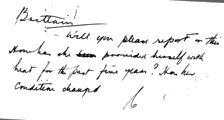 Brittain!
- Will you please report on this
How has she provided himself with
heat for the past five years? Has her
condition changed